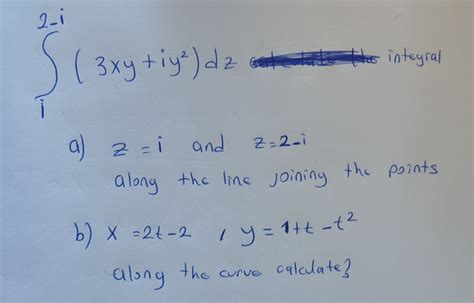 2-i
∫ ( 3xy + iy² ) dz integral
i
a) z = i and z = 2-i
along the line joining the points
b) x = 2t-2 , y = 1+t-t²
along the curve calculate?